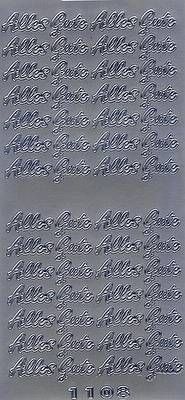 Alles Gute Alles Gute
Alles Gute Alles Gute
Alles Gute Alles Gute
Alles Gute Alles Gute
Alles Gute Alles Gute
Alles Gute Alles Gute
Alles Gute Alles Gute
Alles Gute Alles Gute
Alles Gute Alles Gute
Alles Gute Alles Gute
Alles Gute Alles Gute
Alles Gute Alles Gute
Alles Gute Alles Gute
Alles Gute Alles Gute
1108